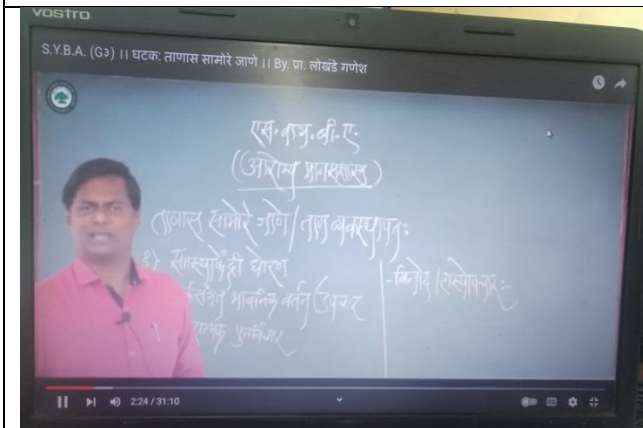 vostro
S.Y.B.A. (G3) ।। घटक: ताणास सामोरे जाणे ।। By. प्रा. लोखंडे गणेश
एस. वाय. बी. ए.
(आरोग्य मानसशास्त्र)
ताणास सामोरे जाणे / ताण व्यवस्थापन:
१) समस्याकेंद्री धोरण
वर्तन उपचार
- विनोद / हास्योपचार:-
2:24 / 31:10